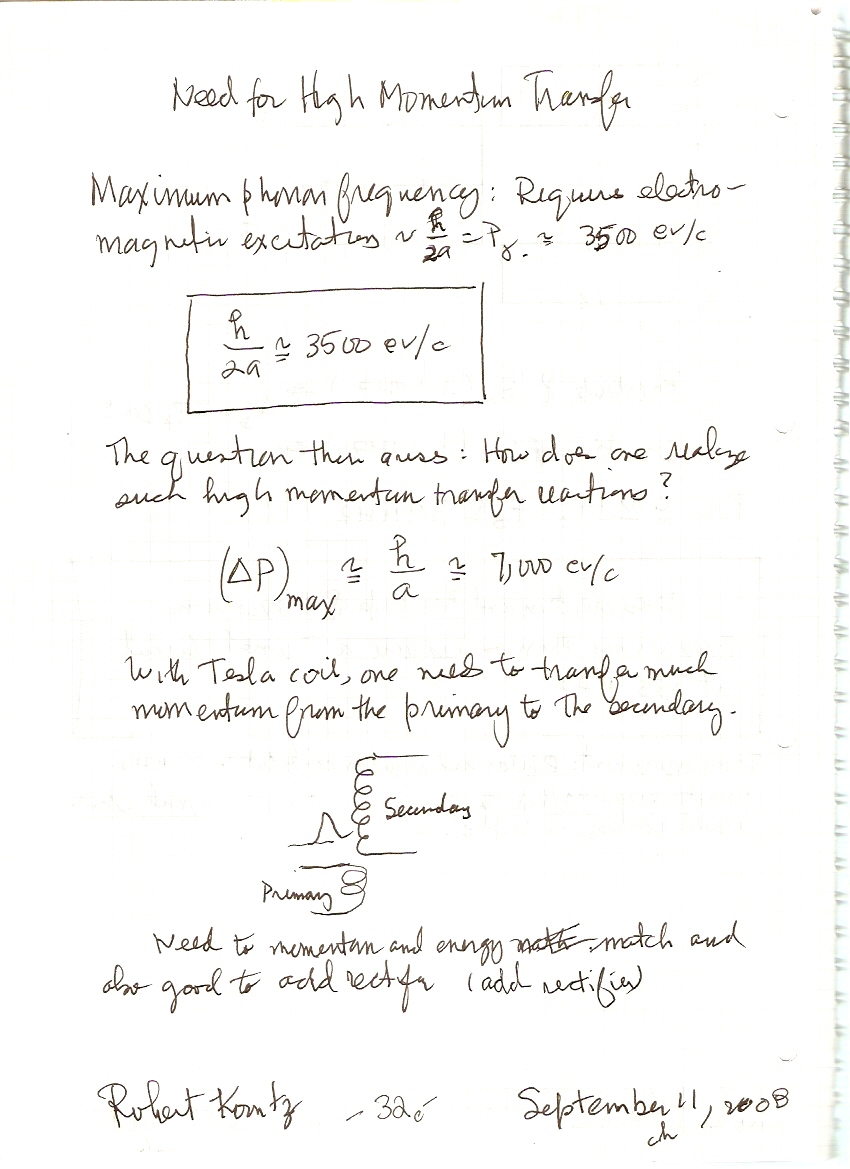 Need for High Momentum Transfer
Maximum phonon frequency: Require electro-
magnetic excitations ~ ħ/2a = Pγ. ≅ 3500 ev/c
ħ/2a ≅ 3500 ev/c
The question then arises: How does one realize
such high momentum transfer reactions?
(ΔP)max ≅ ħ/a ≅ 7,000 ev/c
With Tesla coil, one needs to transfer much
momentum from the primary to the secondary.
Secondary
Primary
Need to momentum and energy match and
also good to add rectifer (add rectifier)
Robert Koontz - 32 - September 11, 2008